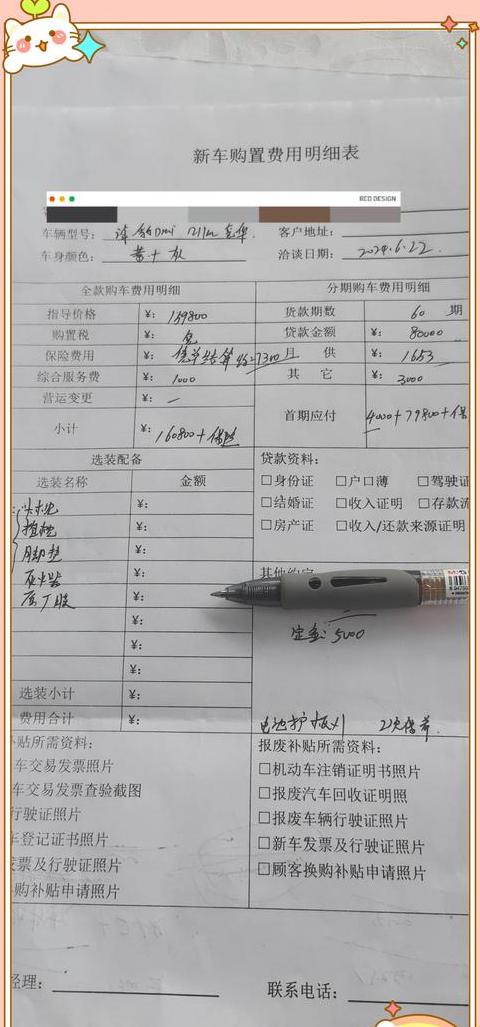 新车购置费用明细表
RED DESIGN
车辆型号: 汉 DMi 121km 客户地址:
车身颜色: 黄+灰 洽谈日期: 2024.6.22
全款购车费用明细 分期购车费用明细
指导价格 ¥: 159800 贷款期数 60 期
购置税 ¥: 免 贷款金额 ¥: 80000
保险费用 ¥: 结算 7300 月 供 ¥: 1653
综合服务费 ¥: 1000 其 它 ¥: 3000
营运变更 ¥: —
小计 ¥: 160800+保险 首期应付 4000+79800+保
选装配备 贷款资料:
选装名称 金额 □身份证 □户口薄 □驾驶证
¥: □结婚证 □收入证明 □存款流
¥: □房产证 □收入/还款来源证明
脚垫 ¥:
灭火器 ¥:
¥:
¥: 定金: 5000
¥:
选装小计 ¥:
费用合计 ¥: 电池护板×1 2次保养
贴所需资料: 报废补贴所需资料:
车交易发票照片 □机动车注销证明书照片
车交易发票查验截图 □报废汽车回收证明照
行驶证照片 □报废车辆行驶证照片
登记证书照片 □新车发票及行驶证照片
发票及行驶证照片 □顾客换购补贴申请照片
购补贴申请照片
经理: 联系电话: